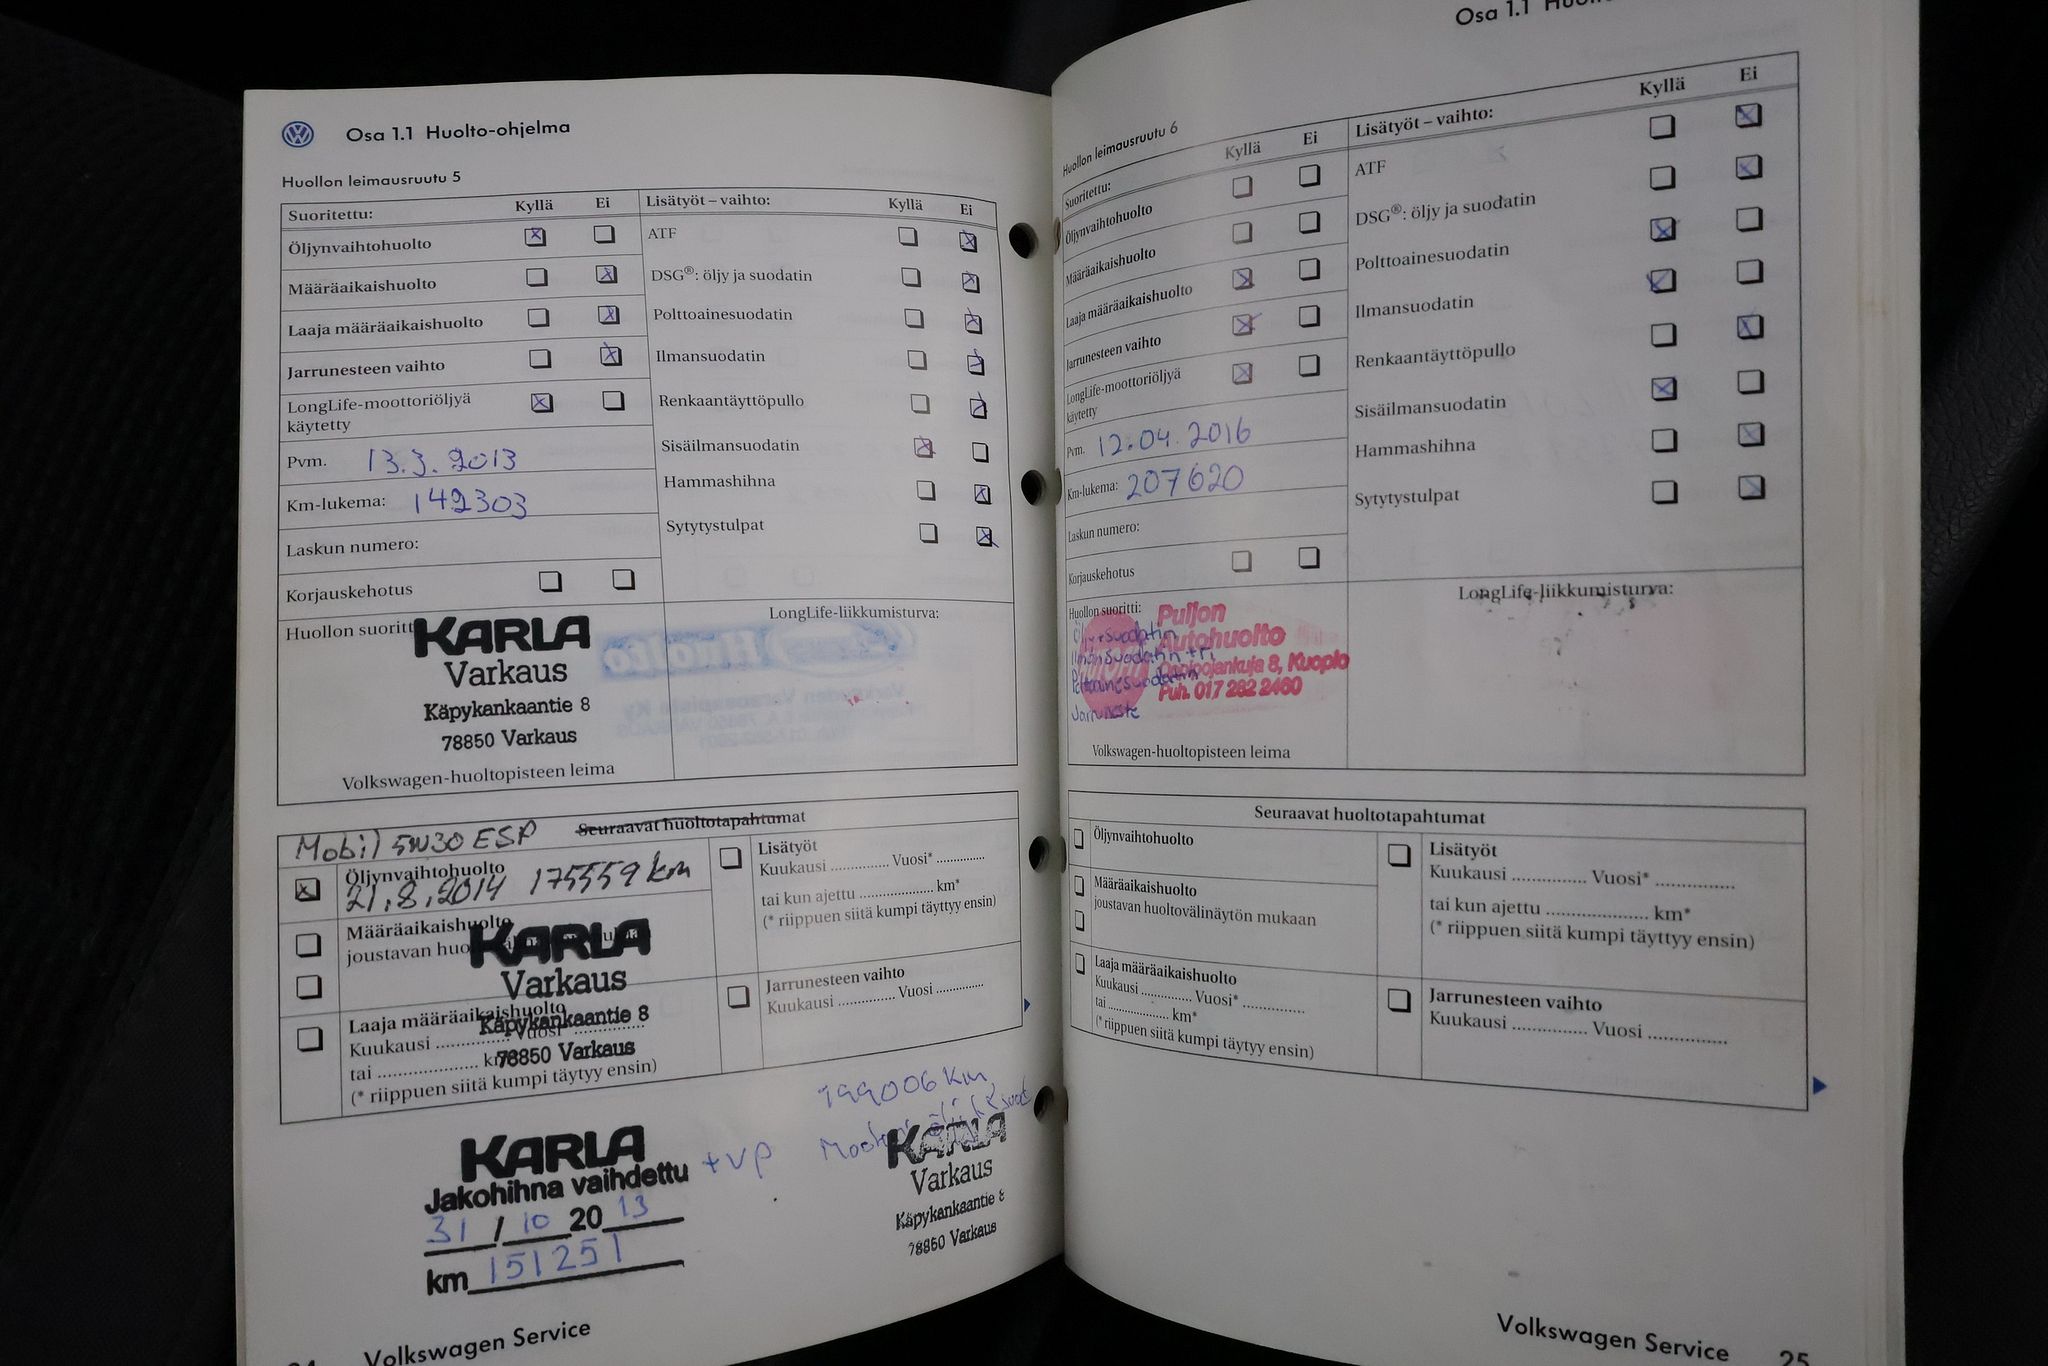 Osa 1.1 Huolto-ohjelma
Huollon leimausruutu 5
Suoritettu: Kyllä Ei
Öljynvaihtohuolto
Määräaikaishuolto
Laaja määräaikaishuolto
Jarrunesteen vaihto
LongLife-moottoriöljyä
käytetty
Pvm. 13.3.2013
Km-lukema: 142303
Laskun numero:
Korjauskehotus
Lisätyöt – vaihto: Kyllä Ei
ATF
DSG®: öljy ja suodatin
Polttoainesuodatin
Ilmansuodatin
Renkaantäyttöpullo
Sisäilmansuodatin
Hammashihna
Sytytystulpat
Huollon suoritt
KARLA
Varkaus
Käpykankaantie 8
78850 Varkaus
Volkswagen-huoltopisteen leima
LongLife-liikkumisturva:
Seuraavat huoltotapahtumat
Mobil 5W30 ESP
Öljynvaihtohuolto
21.8.2014 175559 km
Määräaikaishuolto
joustavan
KARLA
Varkaus
Käpykankaantie 8
78850 Varkaus
Laaja määräaikaishuolto
Kuukausi ............... Vuosi ..............
tai ..................... km
(* riippuen siitä kumpi täytyy ensin)
Lisätyöt
Kuukausi ............ Vuosi* ..............
tai kun ajettu .................... km*
(* riippuen siitä kumpi täyttyy ensin)
Jarrunesteen vaihto
Kuukausi ............ Vuosi ..............
KARLA
Jakohihna vaihdettu + VP
31 / 10 20 13
km 151251
199006 km
KARLA
Varkaus
Käpykankaantie 8
78850 Varkaus
Volkswagen Service
Osa 1.1
Huollon leimausruutu 6
Suoritettu: Kyllä Ei
Öljynvaihtohuolto
Määräaikaishuolto
Laaja määräaikaishuolto
Jarrunesteen vaihto
LongLife-moottoriöljyä
käytetty
Pvm. 12.04.2016
Km-lukema: 207620
Laskun numero:
Korjauskehotus
Lisätyöt – vaihto: Kyllä Ei
ATF
DSG®: öljy ja suodatin
Polttoainesuodatin
Ilmansuodatin
Renkaantäyttöpullo
Sisäilmansuodatin
Hammashihna
Sytytystulpat
Huollon suoritti:
Puijon
Autohuolto
8, Kuopio
Puh. 017 282 2460
Jarruneste
Volkswagen-huoltopisteen leima
LongLife-liikkumisturva:
Seuraavat huoltotapahtumat
Öljynvaihtohuolto
Määräaikaishuolto
joustavan huoltovälinäytön mukaan
Laaja määräaikaishuolto
Kuukausi .............. Vuosi* ................
tai ................. km*
(* riippuen siitä kumpi täytyy ensin)
Lisätyöt
Kuukausi ............... Vuosi* ................
tai kun ajettu ..................... km*
(* riippuen siitä kumpi täyttyy ensin)
Jarrunesteen vaihto
Kuukausi ............... Vuosi ................
Volkswagen Service 25